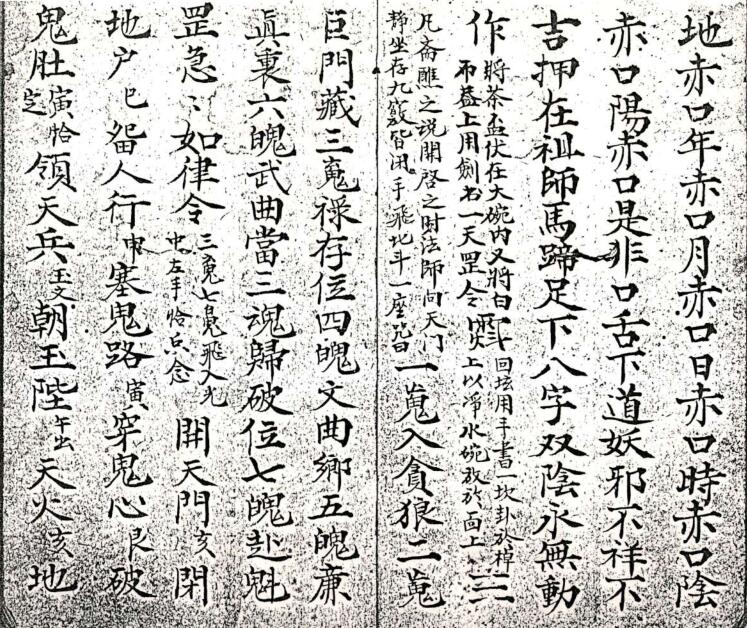 地赤口年赤口月赤口日赤口時赤口陰
赤口陽赤口是非口舌下道妖邪不祥不
吉押在祖師馬蹄足下八字双陰永無動
作將茶盃伏在大碗内又將白
回坛用手書一坎卦於棹
而盖上用劍书一天罡令
上以淨水碗放於面上三
凡斎醮之説開啓之时法師向天门
静坐存九竅皆闭手飛地斗一座咒曰
一䰟入貪狼二䰟
巨門藏三䰟禄存位四魄文曲鄉五魄廉
真裏六魄武曲當三魂歸破位七魄赴魁
罡急〻如律令三䰟七魄飛入光
中左手恰㸃念
開天門亥閉
地户巳畱人行申塞鬼路寅穿鬼心艮破
鬼肚寅恰
領天兵玉文朝玉陛午出天火亥地